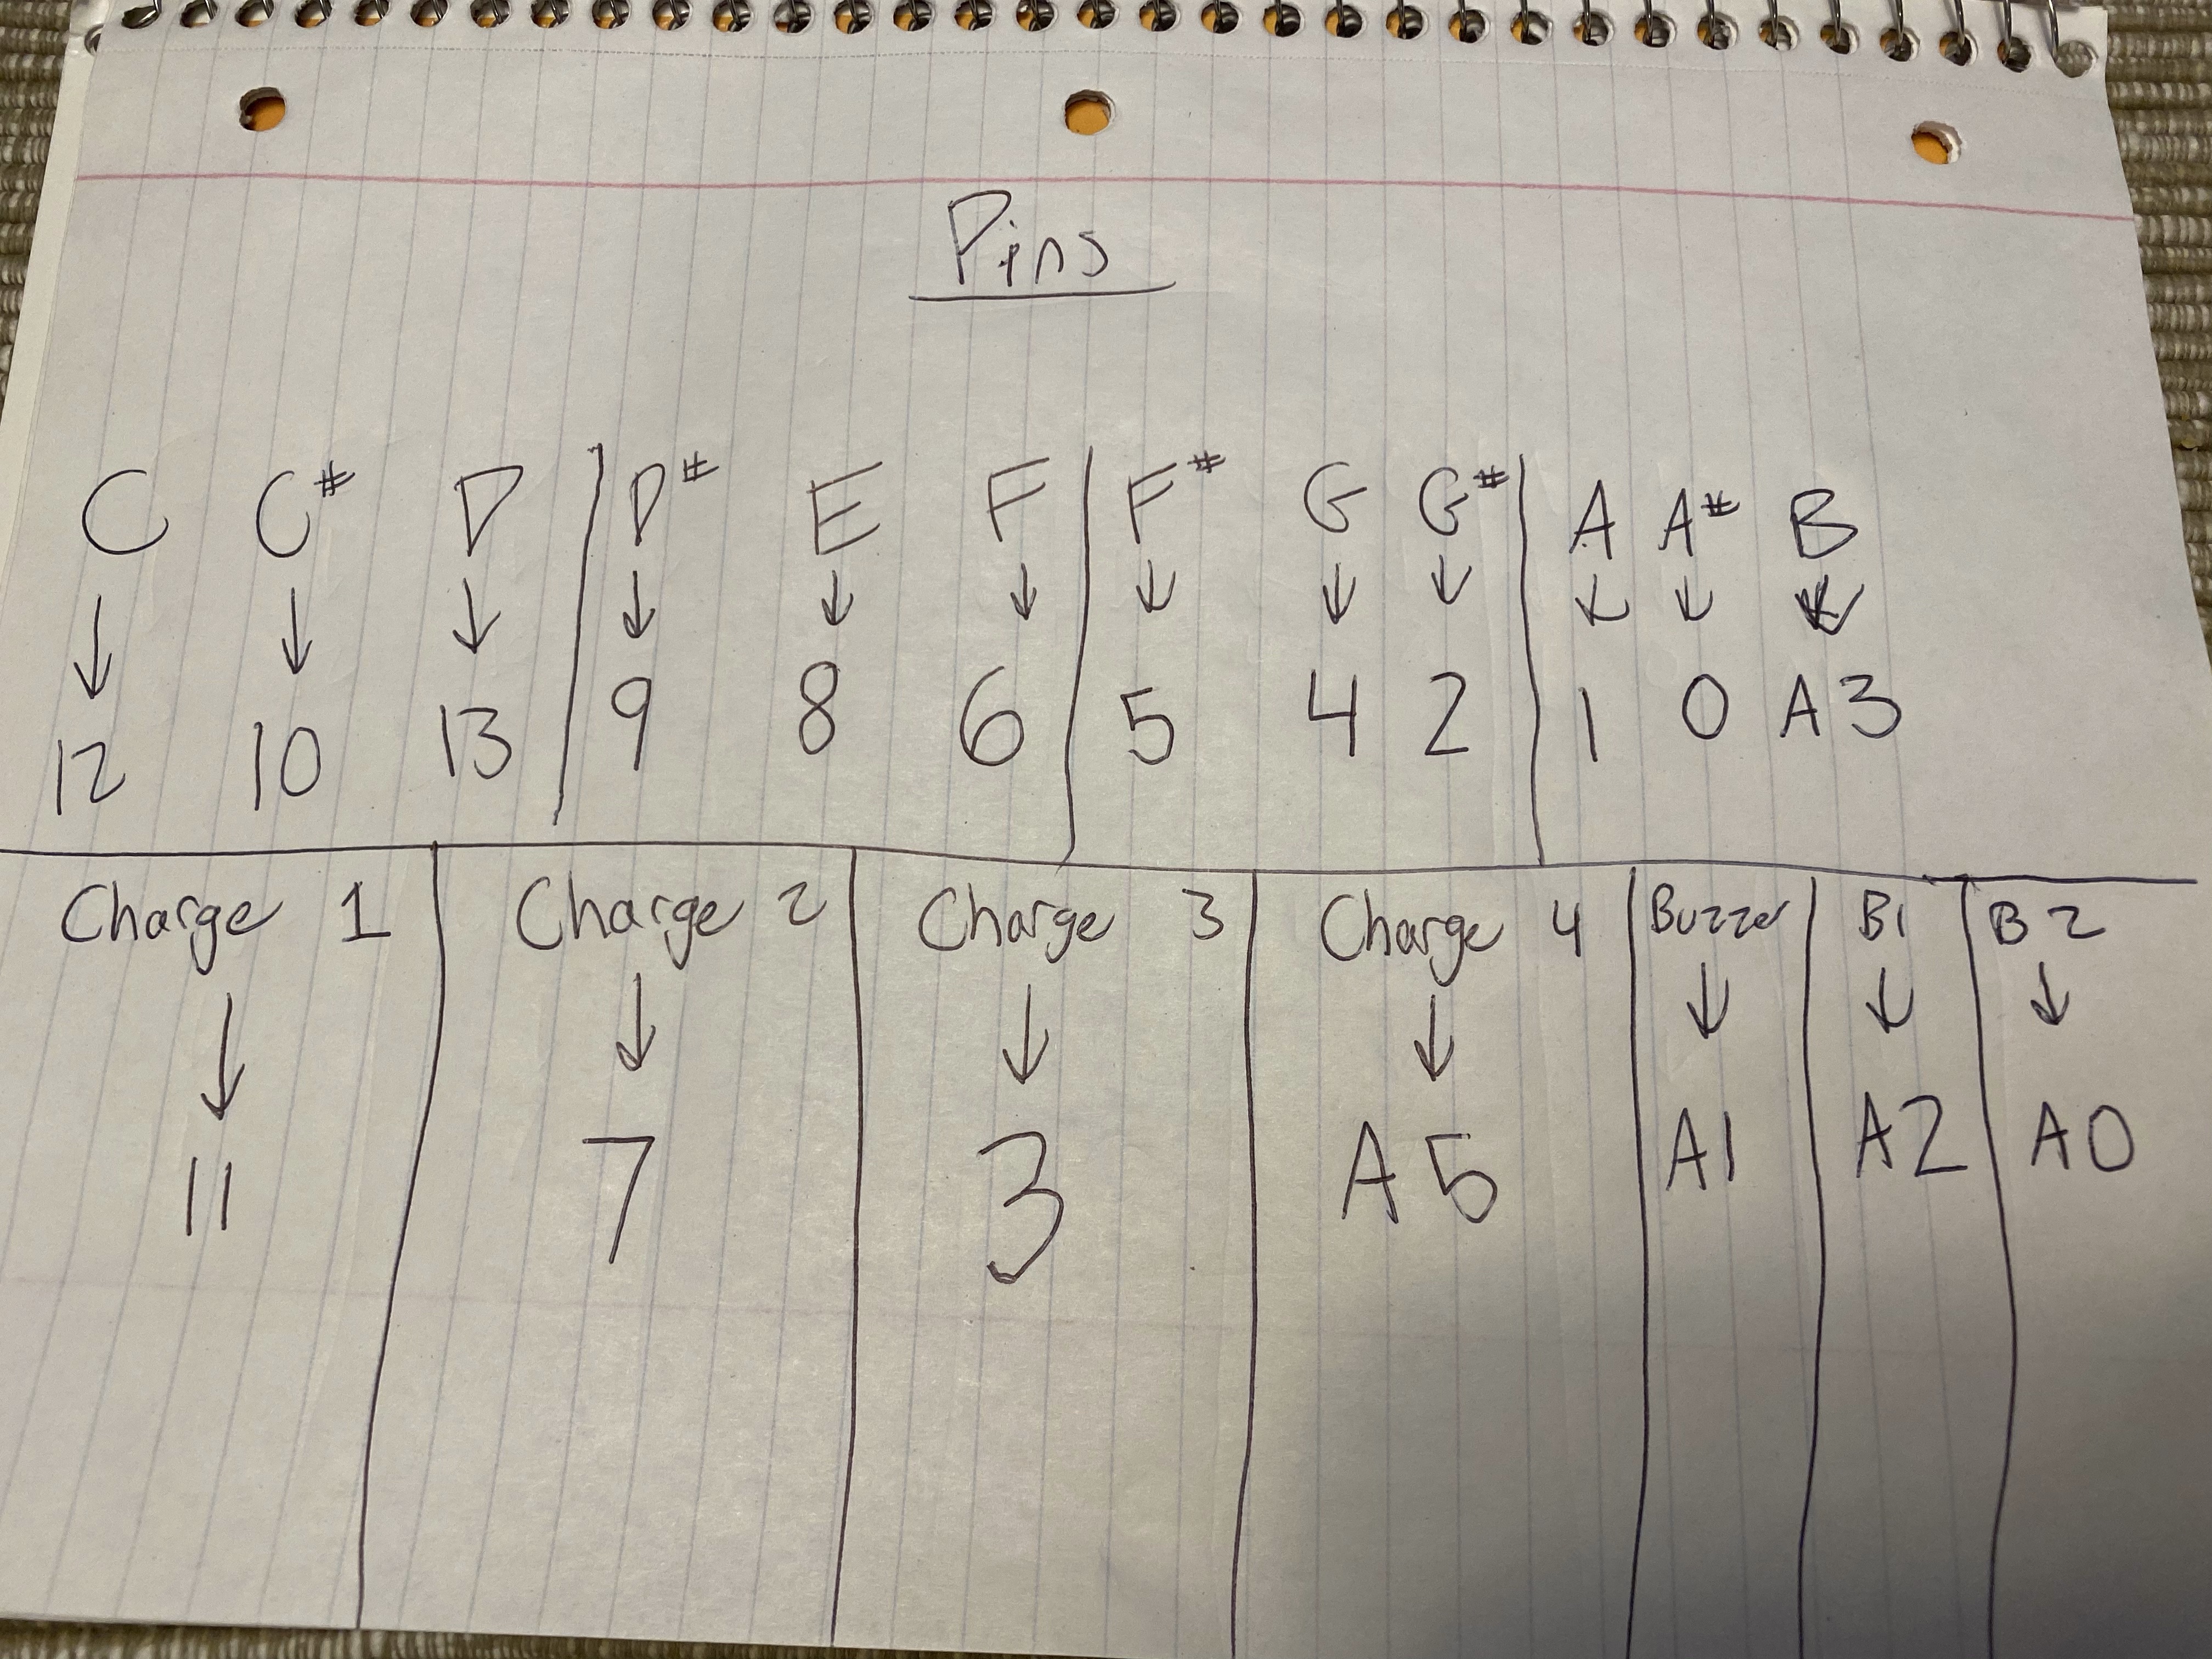 Pins
C C# D D# E F F# G G# A A# B
↓ ↓ ↓ ↓ ↓ ↓ ↓ ↓ ↓ ↓ ↓ ↓
12 10 13 9 8 6 5 4 2 1 0 A3
Charge 1 Charge 2 Charge 3 Charge 4 Buzzer B1 B2
↓ ↓ ↓ ↓ ↓ ↓ ↓
11 7 3 A5 A1 A2 A0